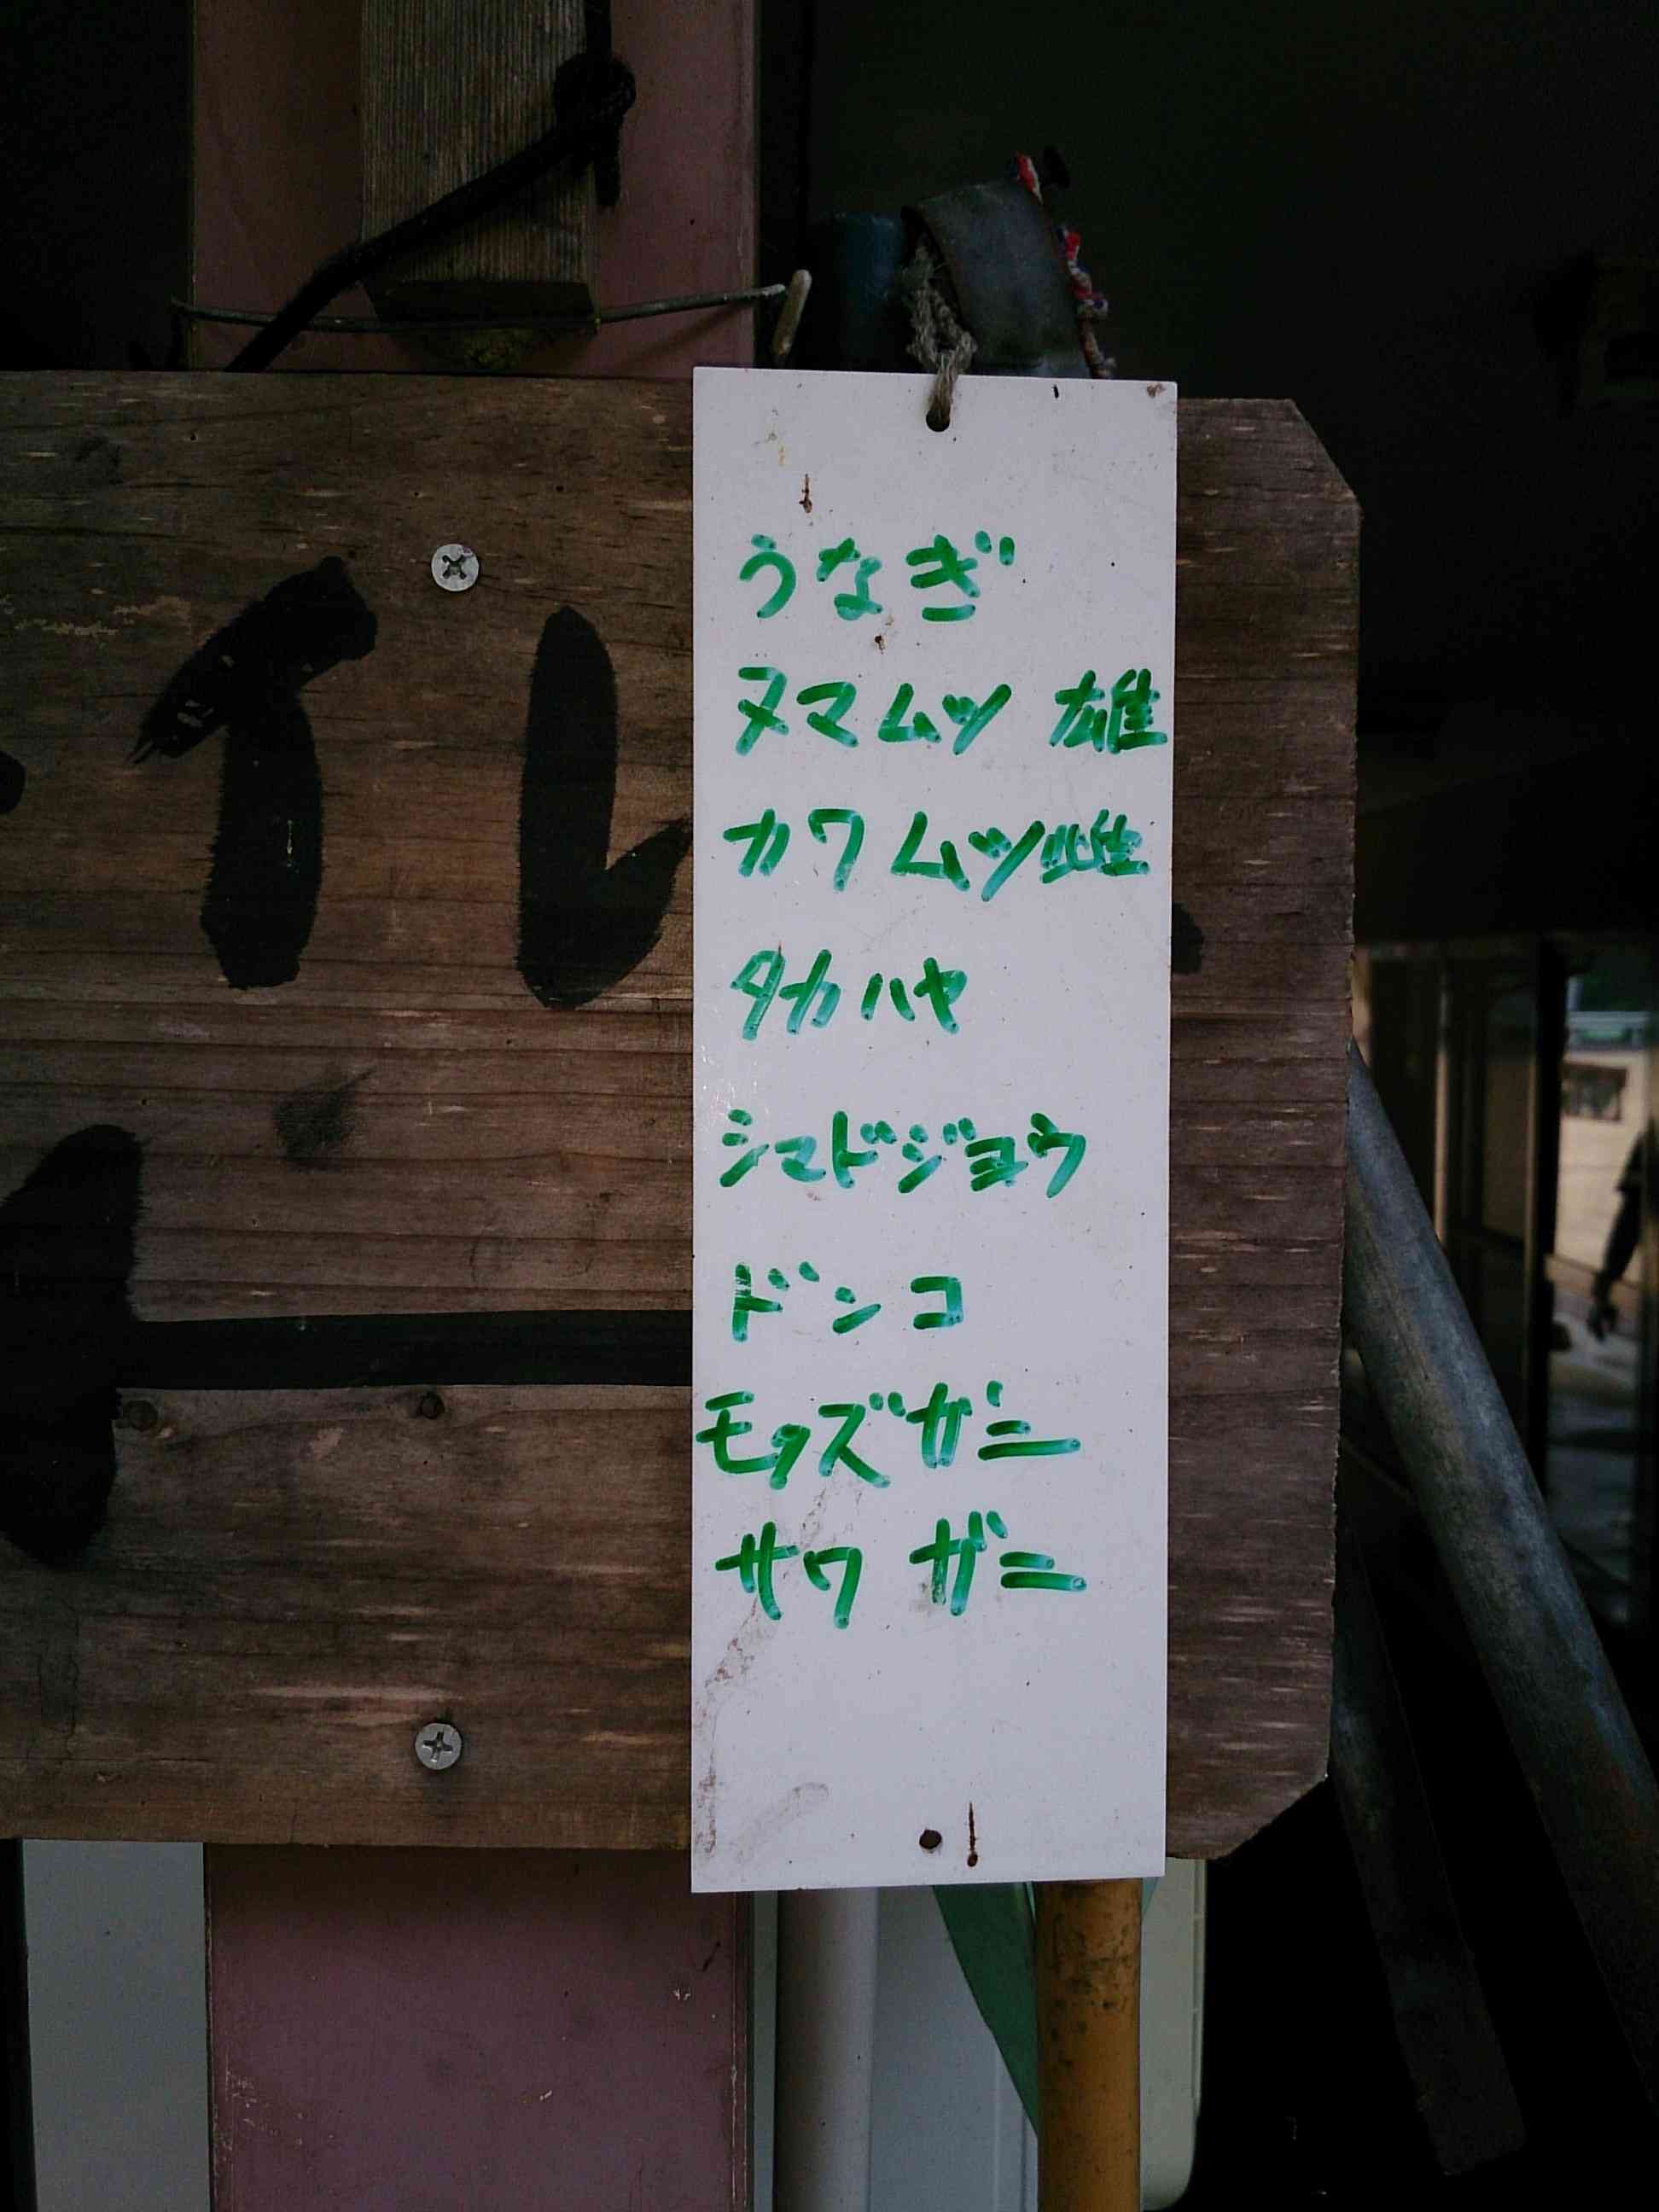 イレ
うなぎ
ヌマムツ 雄
カワムツ雌
タカハヤ
シマドジョウ
ドンコ
モクズガニ
サワガニ